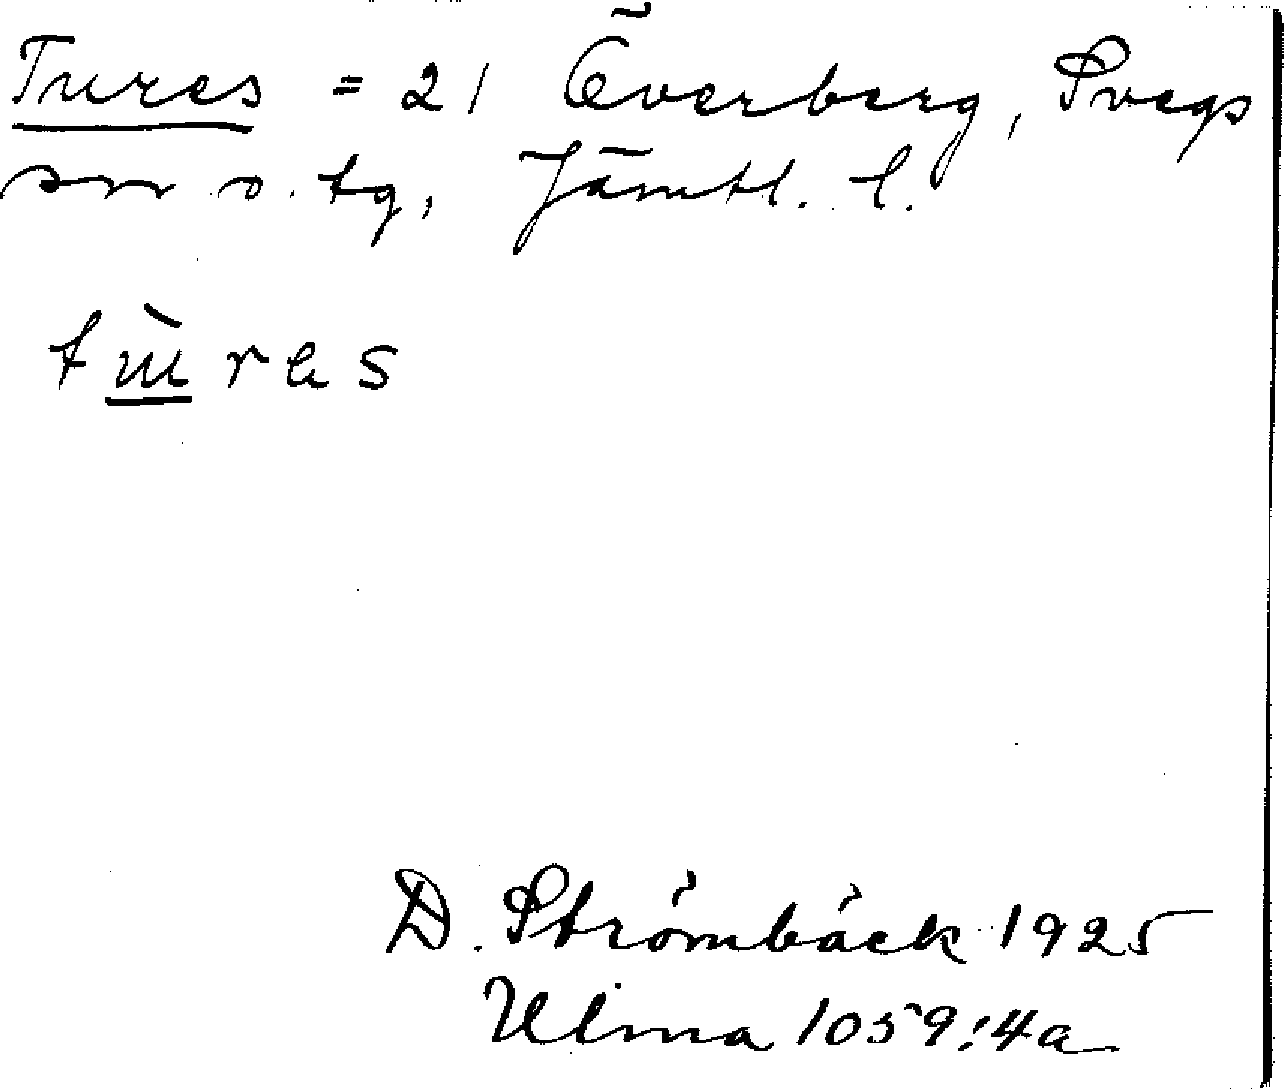 Tures = 21 Överberg, Svegs
sn o. tg, Jämtl. l.
tùras
D. Strömbäck 1925
Ulma 1059:4a